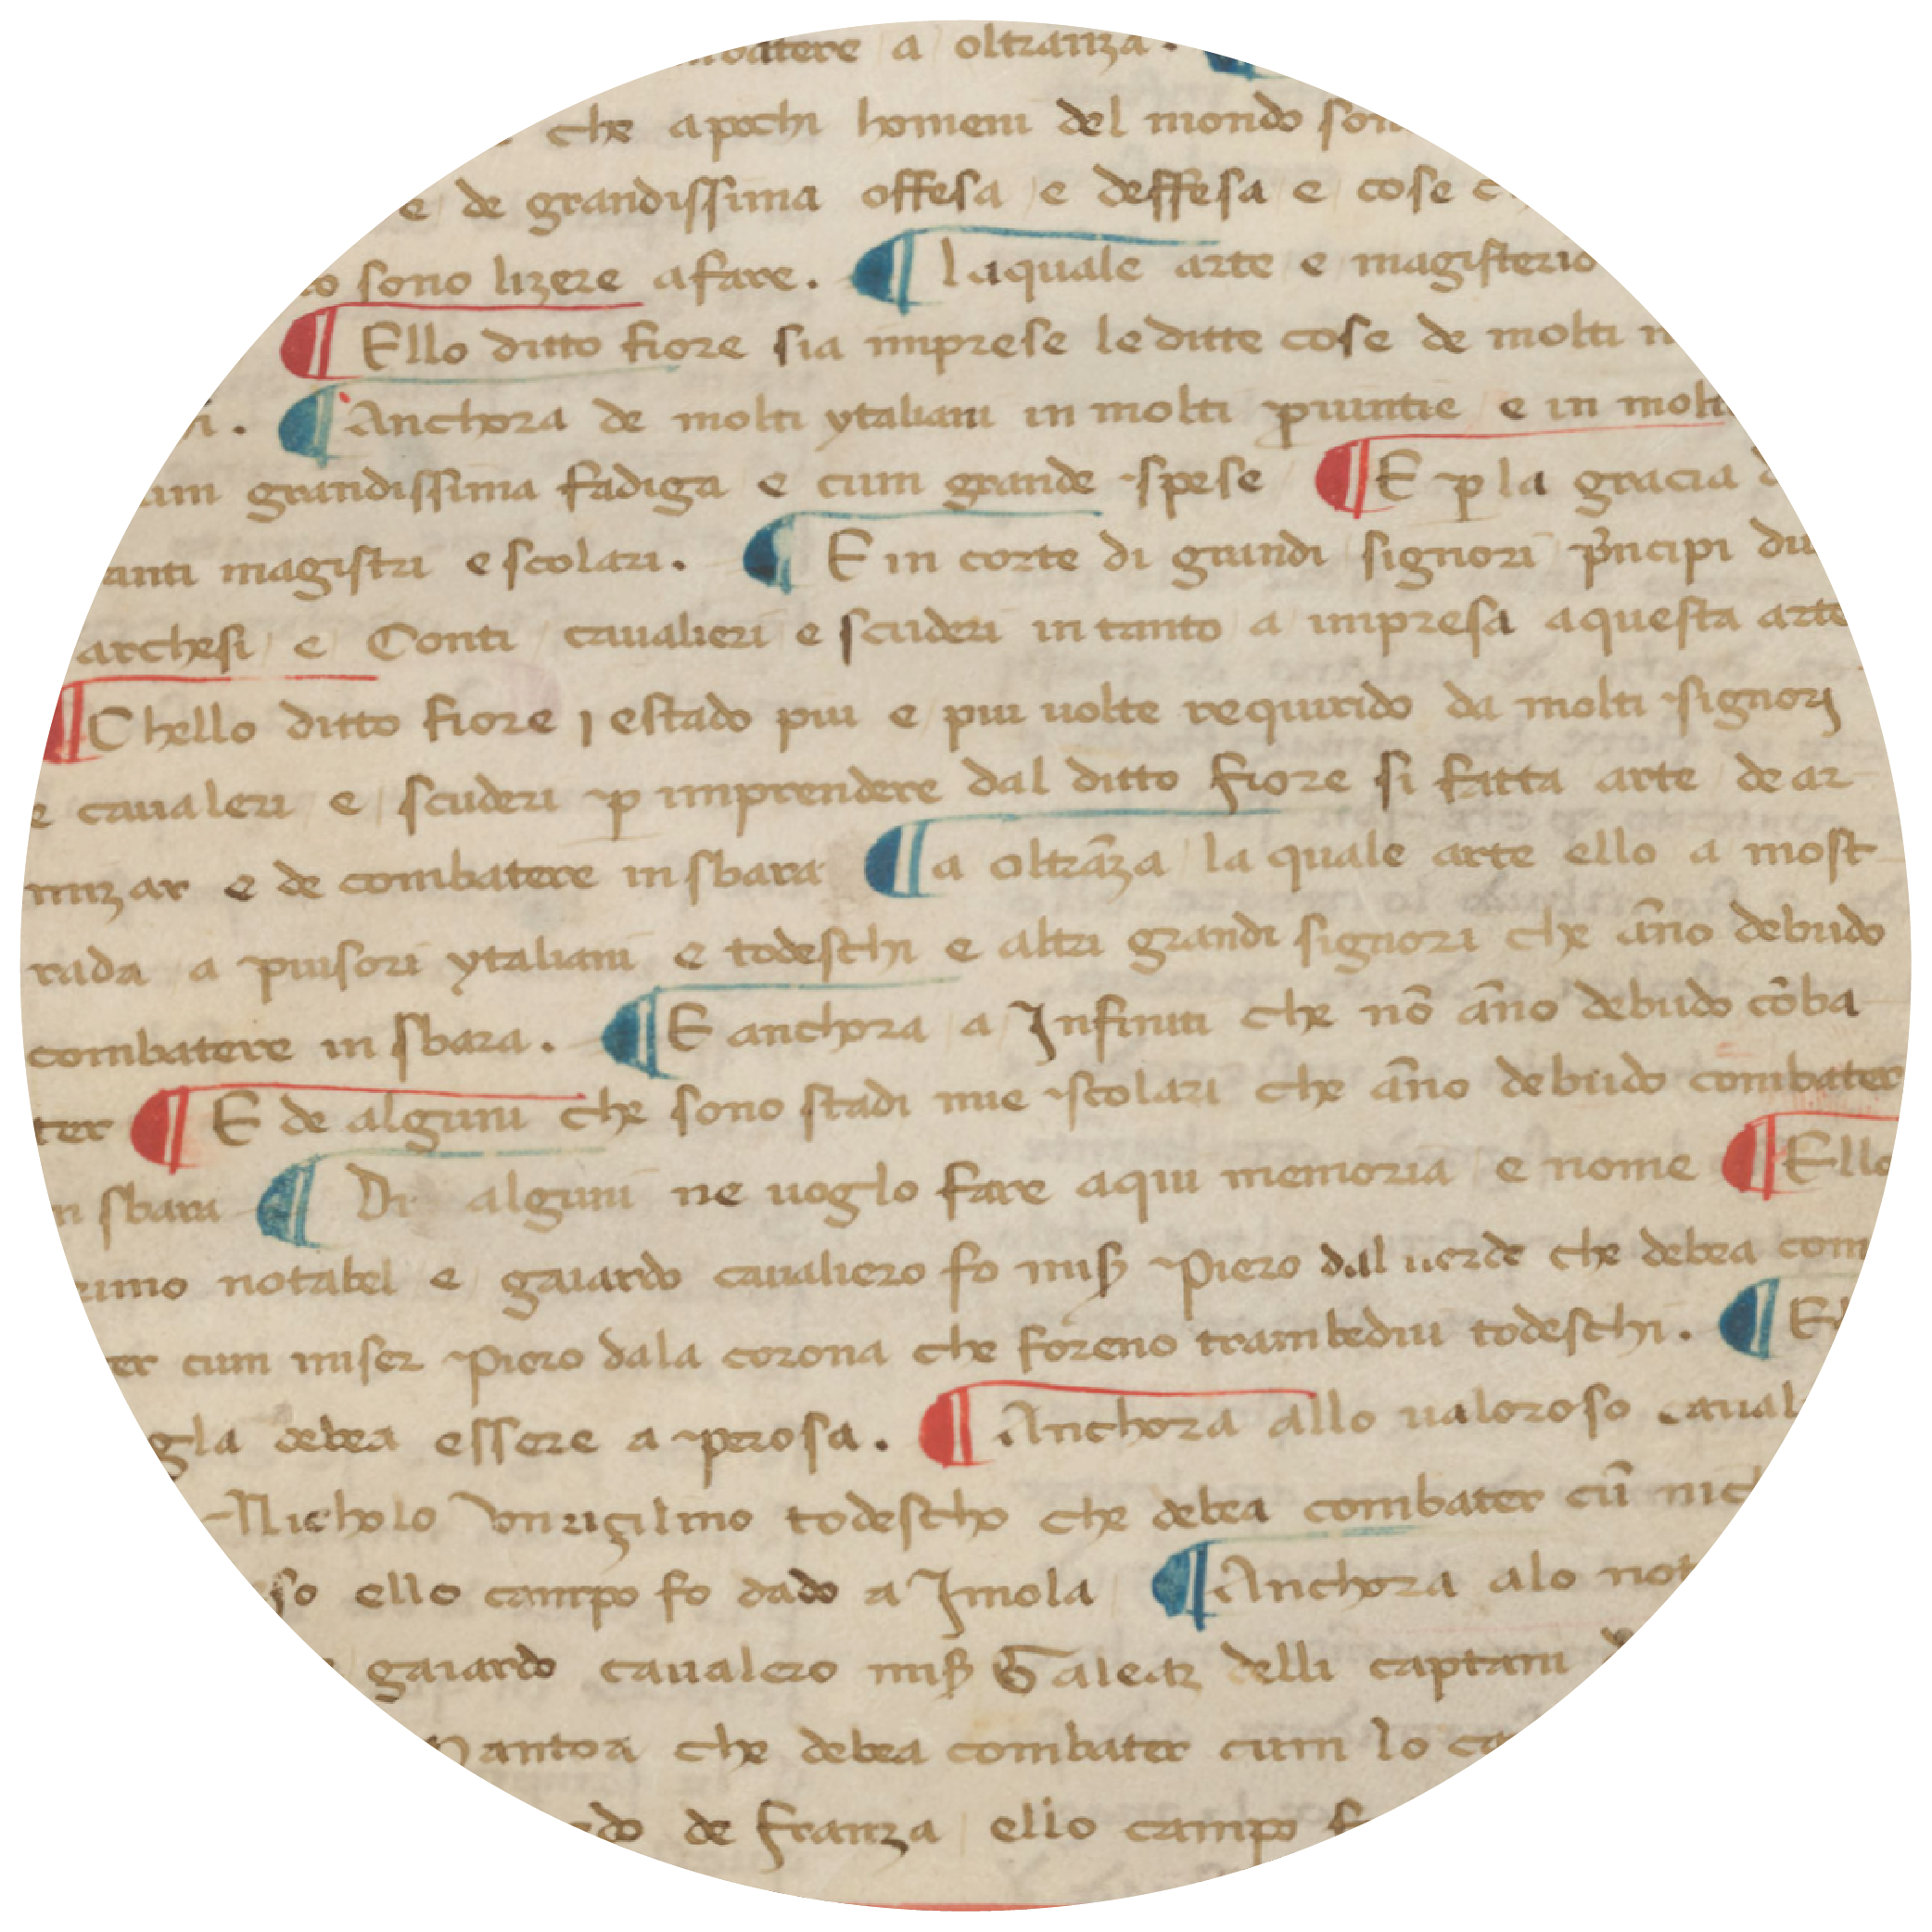 batere a oltranza.
che apochi homeni del mondo son
e de grandissima offesa e deffesa e cose
sono lizere afare. ¶ laquale arte e magisterio
¶ Ello ditto fiore sia imprese le ditte cose de molti
¶ Anchora de molti ytaliani in molti pruintie e in molt
cum grandissima fadiga e cum grande spese ¶ E p la gracia d
tanti magistri e scolari. ¶ E in corte di grandi signori p̃ncipi du
archesi e Conti cavalieri e scuderi in tanto a impresa aquesta arte
¶ Chello ditto fiore j estado piu e piu uolte requirido da molti signorj
e caualeri e scuderi p imprendere dal ditto fiore si fatta arte de ar
mizar e de combatere in sbara ¶ a oltrãza la quale arte ello a most
rada a piusori ytaliani e todeschi e altri grandi signori che ãno debudo
combatere in sbara. ¶ E anchora a Infiniti che nõ ãno debudo cõba
ter ¶ E de alguni che sono stadi mie scolari che ãno debudo combater
in sbara ¶ Di alguni ne uoglo fare aqui memoria e nome ¶ Ello
rimo notabel e gaiardo caualiero fo misƥ Piero dal uerde che debea com
ter cum miser Piero dala corona che foreno trambediu todeschi. ¶ E
gla debea essere a perosa. ¶ Anchora allo ualoroso caual
Nicholo Vnrigilino todescho che debea combater cũ nich
so ello campo fo dado a Imola ¶ Anchora alo not
gaiardo caualero misƥ Galeaz delli captani
Mantoa che debea combater cum lo
do de Franza ello campo f